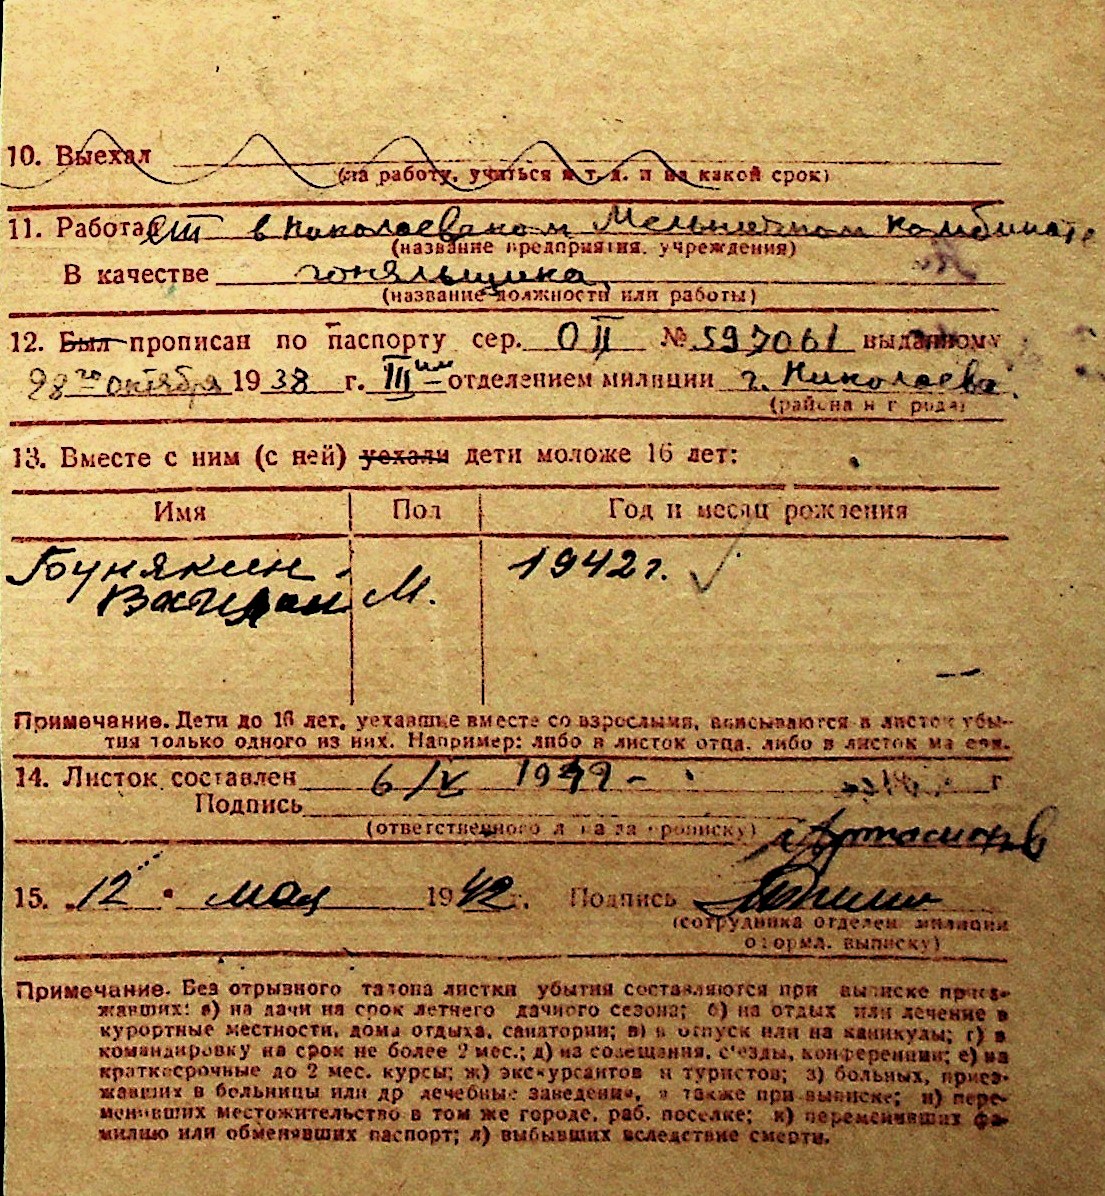 10. Выехал
(на работу, учиться и т. д. и на какой срок)
11. Работает в Николаевском Мельничном комбинате
(название предприятия, учреждения)
В качестве гоняльщика
(название должности или работы)
12. Был прописан по паспорту сер. О II № 597061 выданному
28го октября 1938 г. III им отделением милиции г. Николаева
(района и города)
13. Вместе с ним (с ней) уехали дети моложе 16 лет:
Имя Пол Год и месяц рождения
Бунякин М. 1942 г.
Примечание. Дети до 16 лет, уехавшие вместе со взрослыми, вписываются в листок убы-
тия только одного из них. Например: либо в листок отца, либо в листок матери.
14. Листок составлен 6/V г
Подпись
(ответственного лица за прописку)
15. 12 мая 1942 г. Подпись
(сотрудника отделен. милиции
оформл. выписку)
Примечание. Без отрывного талона листки убытия составляются при выписке приез-
жавших: а) на дачи на срок летнего дачного сезона; б) на отдых или лечение в
курортные местности, дома отдыха, санатории; в) в отпуск или на каникулы; г) в
командировку на срок не более 2 мес.; д) на совещания, с'езды, конференции; е) на
краткосрочные до 2 мес. курсы; ж) экскурсантов и туристов; з) больных, приез-
жавших в больницы или др лечебные заведения, а также при выписке; и) пере-
менивших местожительство в том же городе, раб. поселке; к) переменивших фа-
милию или обменявших паспорт; л) выбывших вследствие смерти.